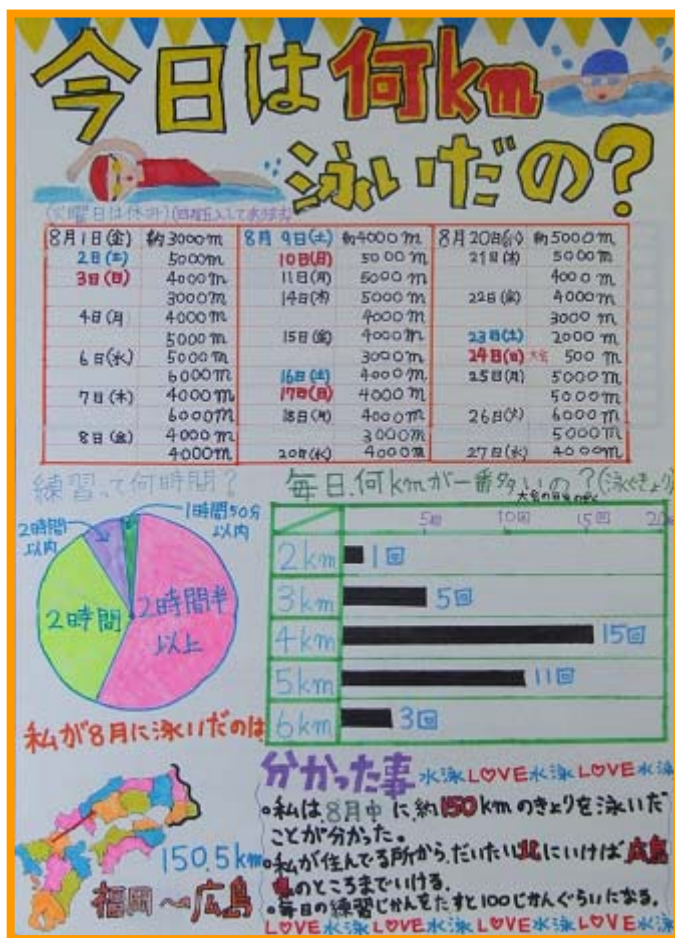 今日は何km
泳いだの？
(火曜日は休み)(四捨五入してあります)
8月1日(金) 約3000m 8月9日(土) 約4000m 8月20日(水) 約5000m
2日(土) 5000m 10日(日) 5000m 21日(木) 5000m
3日(日) 4000m 11日(月) 5000m 4000m
3000m 14日(木) 5000m 22日(金) 4000m
4日(月) 4000m 4000m 3000m
5000m 15日(金) 4000m 23日(土) 2000m
6日(水) 5000m 3000m 24日(日) 大会 500m
6000m 16日(土) 4000m 25日(月) 5000m
7日(木) 4000m 17日(日) 4000m 5000m
6000m 18日(月) 4000m 26日(火) 6000m
8日(金) 4000m 3000m 5000m
4000m 20日(水) 4000m 27日(水) 4000m
練習って何時間？
1時間50分
以内
2時間
以内
2時間
2時間半
以上
毎日、何kmが一番多いの？(泳ぐきょり)
5回 10回 15回 20
2km 1回
3km 5回
4km 15回
5km 11回
6km 3回
私が8月に泳いだのは
150.5km
福岡〜広島
分かった事 水泳LOVE水泳LOVE水泳
•私は8月中に、約150kmのきょりを泳いだ
ことが分かった。
•私が住んでる所から、だいたい北にいけば広島
のところまでいける。
•毎日の練習じかんをたすと100じかんぐらいになる。
LOVE水泳LOVE水泳LOVE水泳LOVE水泳